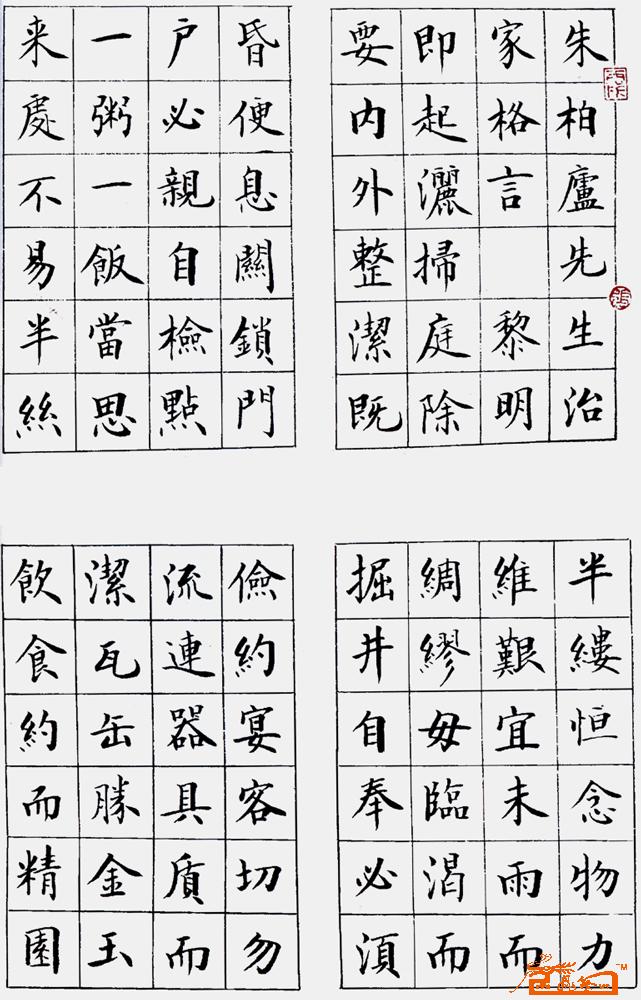 朱柏廬先生治
家格言 黎明
即起灑掃庭除
要内外整潔既
昏便息關鎖門
户必親自檢點
一粥一飯當思
来處不易半絲
半縷恒念物力
維艱宜未雨而
綢繆毋臨渴而
掘井自奉必須
儉約宴客切勿
流連器具質而
潔瓦缶勝金玉
飲食約而精園